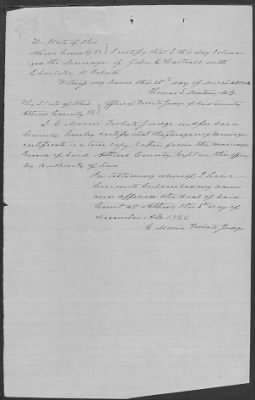 The State of Ohio
Athens County SS } I certify that I this day Solemn
ized the Marriage of John L. Hartsell with
Charlotte M. Roberts
Witness my hand this 25th day of March
Thomas S.
The State of Ohio } Office of Probate Judge of Said County
Athens County SS }
I, C. Morris Probate Judge in and for Said
County hereby certify that the foregoing marriage
certificate is a true copy taken from the Marriage
Record of Said Athens County kept in this office
by Authority of Law
In testimony whereof I have
hereunto Subscribed my name
and affixed the Seal of Said
Court at Athens this day of
December A.D. 1862
C. Morris Probate Judge